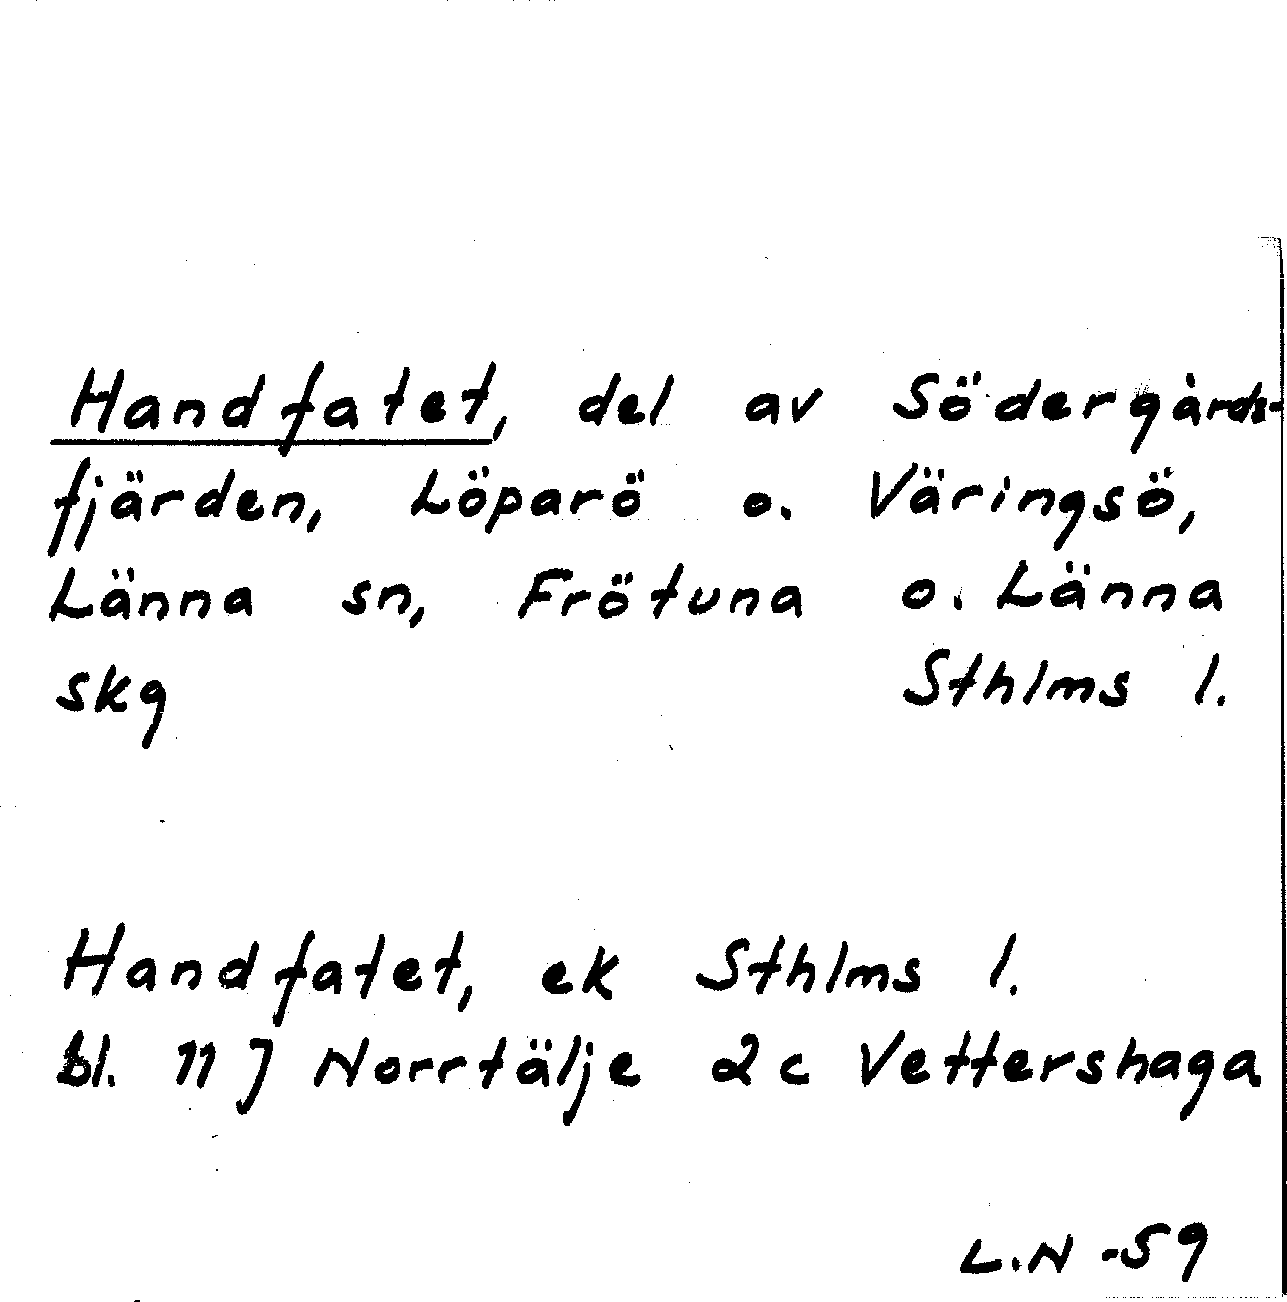 Handfatet, del av Södergårds-
fjärden, Löparö o. Väringsö,
Länna sn, Frötuna o. Länna
skg Sthlms l.
Handfatet, ek Sthlms l.
bl. 11 J Norrtälje 2 c Vettershaga
L.N -59